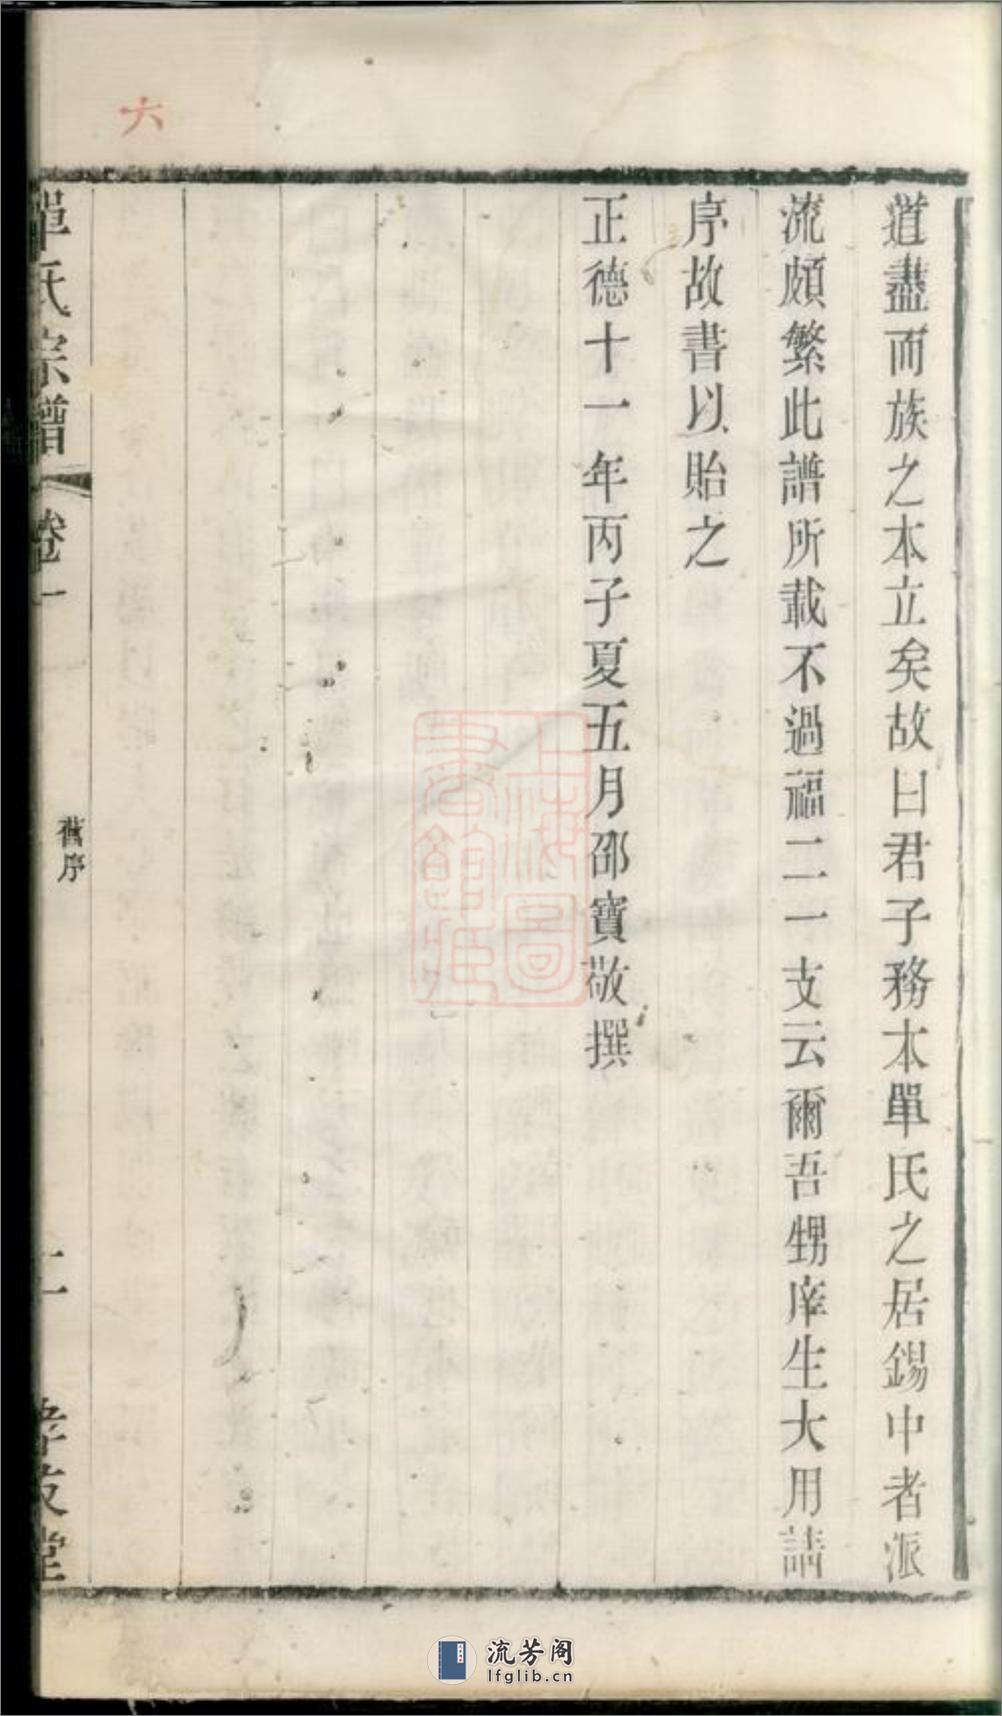 道盡而族之本立矣故曰君子務本單氏之居錫中者派
流頗繁此譜所載不過福二一支云爾吾甥庠生大用請
序故書以貽之
正德十一年丙子夏五月邵寶敬撰
單氏宗譜 卷一
舊序
二
孝友堂
六
上海圖書館藏
流芳阁
lfglib.cn